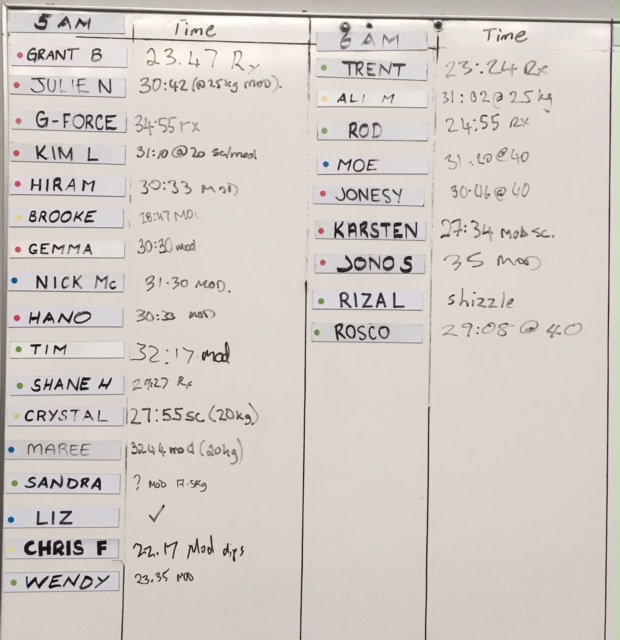 5 AM Time
GRANT B 23.47 Rx
JULIE N 30:42 (@25kg MOD).
G-FORCE 34:55 rx
KIM L 31:10 @ 20 sc/mod
HIRAM 30:33 MOD
BROOKE 28:47 MOD
GEMMA 30:30 mod
NICK Mc 31.30 MOD.
HANO 30:33 MOD
TIM 32:17 mod
SHANE H 29:27 Rx
CRYSTAL 27:55 sc (20kg)
MAREE 3244 mod (20kg)
SANDRA ? MOD 17.5kg
LIZ ✓
CHRIS F 22.17 Mod dips
WENDY 23.35 MOD
6 AM Time
TRENT 23:24 Rx
ALI M 31:02 @ 25 kg
ROD 24:55 Rx
MOE 31.20 @ 40
JONESY 30.46 @ 40
KARSTEN 27:34 MOD SC.
JONO S 35 MOD
RIZAL shizzle
ROSCO 29:08 @ 40